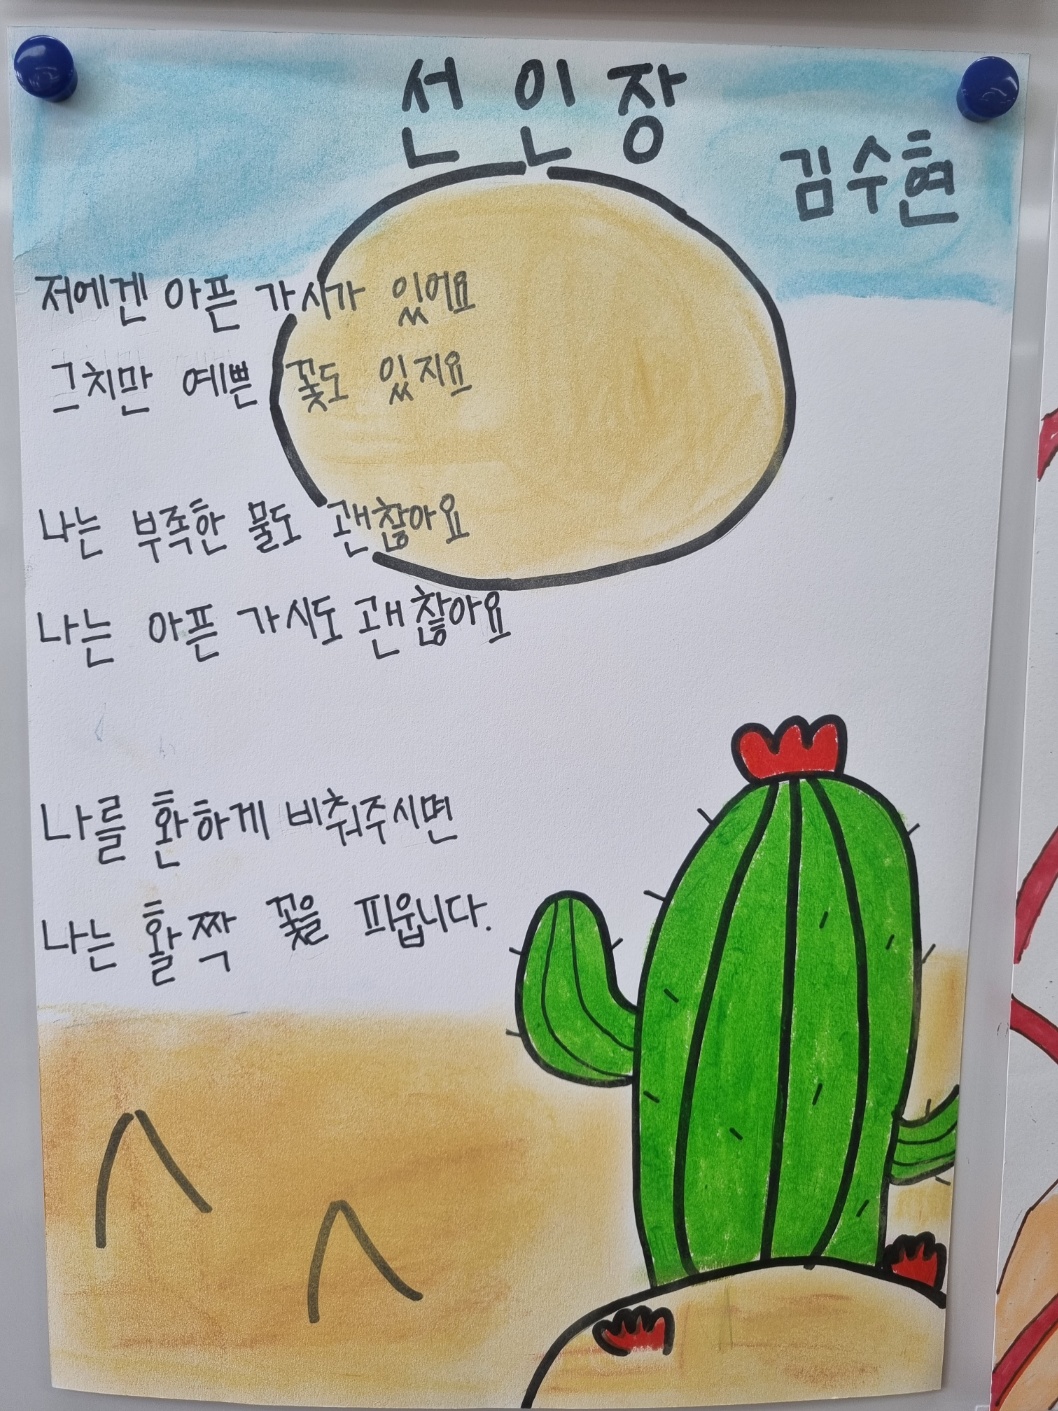 선인장
김수현
저에겐 아픈 가시가 있어요
그치만 예쁜 꽃도 있지요
나는 부족한 물도 괜찮아요
나는 아픈 가시도 괜찮아요
나를 환하게 비춰주시면
나는 활짝 꽃을 피웁니다.